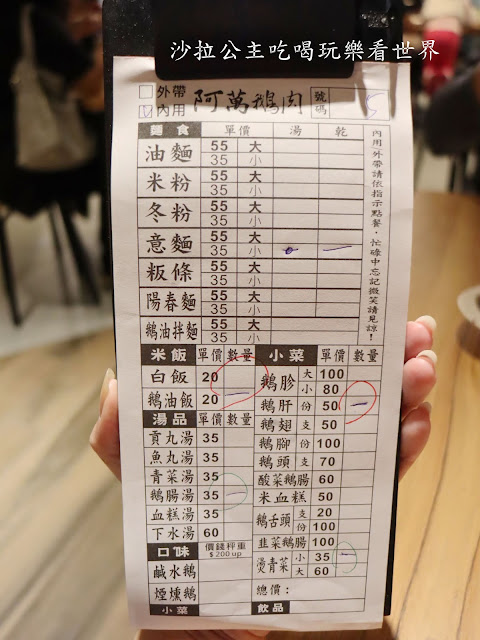 沙拉公主吃喝玩樂看世界
外帶
內用
阿萬鵝肉
號碼
5
麵食 單價 湯 乾
油麵 55 大
35 小
米粉 55 大
35 小
冬粉 55 大
35 小
意麵 55 大
35 小
粄條 55 大
35 小
陽春麵 55 大
35 小
鵝油拌麵 55 大
35 小
內用外帶請依指示點餐，忙碌中忘記微笑請見諒！
米飯 單價 數量
白飯 20
鵝油飯 20 一
湯品 單價 數量
貢丸湯 35
魚丸湯 35
青菜湯 35
鵝腸湯 35 一
血糕湯 35
下水湯 60
口味 價錢秤重
$200up
鹹水鵝
煙燻鵝
小菜
小菜 單價 數量
鵝胗 大 100
小 80
鵝肝 份 50 一
鵝翅 支 50
鵝腳 份 100
鵝頭 支 70
酸菜鵝腸 60
米血糕 50
鵝舌頭 支 20
份 100
韭菜鵝腸 100
燙青菜 小 35 一
大 60
總價：
飲品